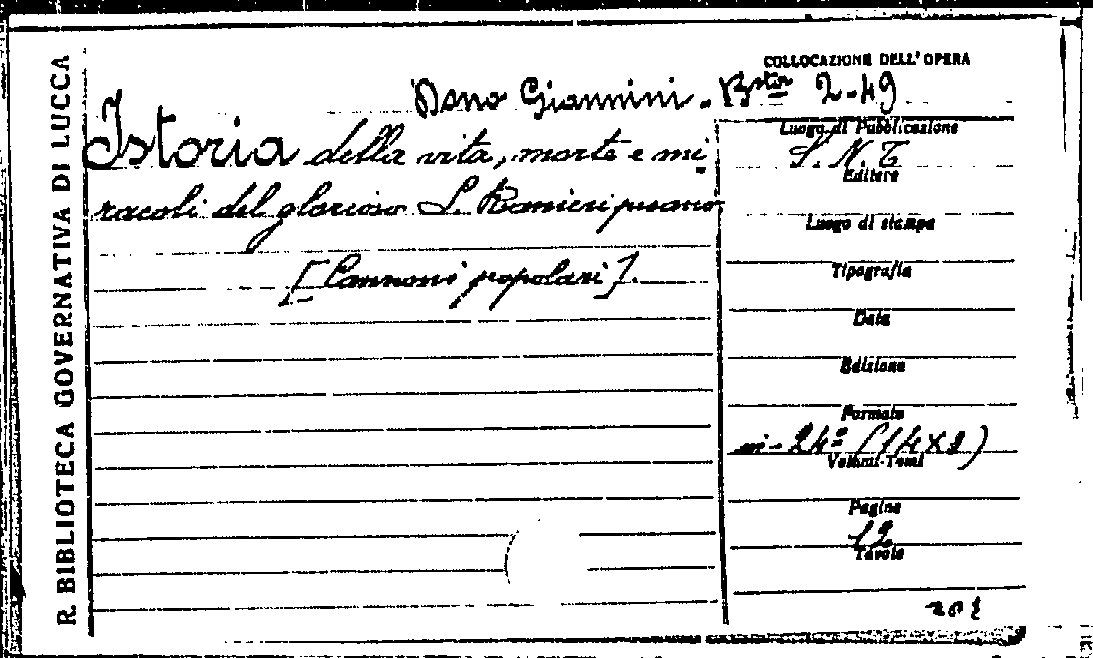 R. BIBLIOTECA GOVERNATIVA DI LUCCA
COLLOCAZIONE DELL'OPERA
Dono Giannini. Bta 2-49
Istoria della vita, morte e mi
racoli del glorioso S. Ranieri pisano
[Canzoni popolari].
Luogo di Pubblicazione
S. N. T
Editore
Luogo di stampa
Tipografia
Data
Edizione
Formato
in-24º (14X9)
Volumi-Tomi
Pagine
12
Tavole